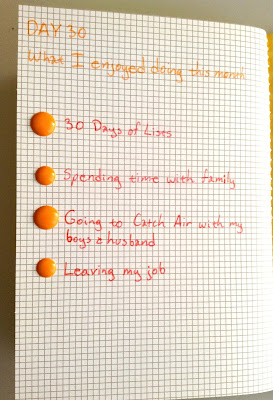 DAY 30
What I enjoyed doing this month
30 Days of Lists
Spending time with family
Going to Catch Air with my
boys & husband
Leaving my job